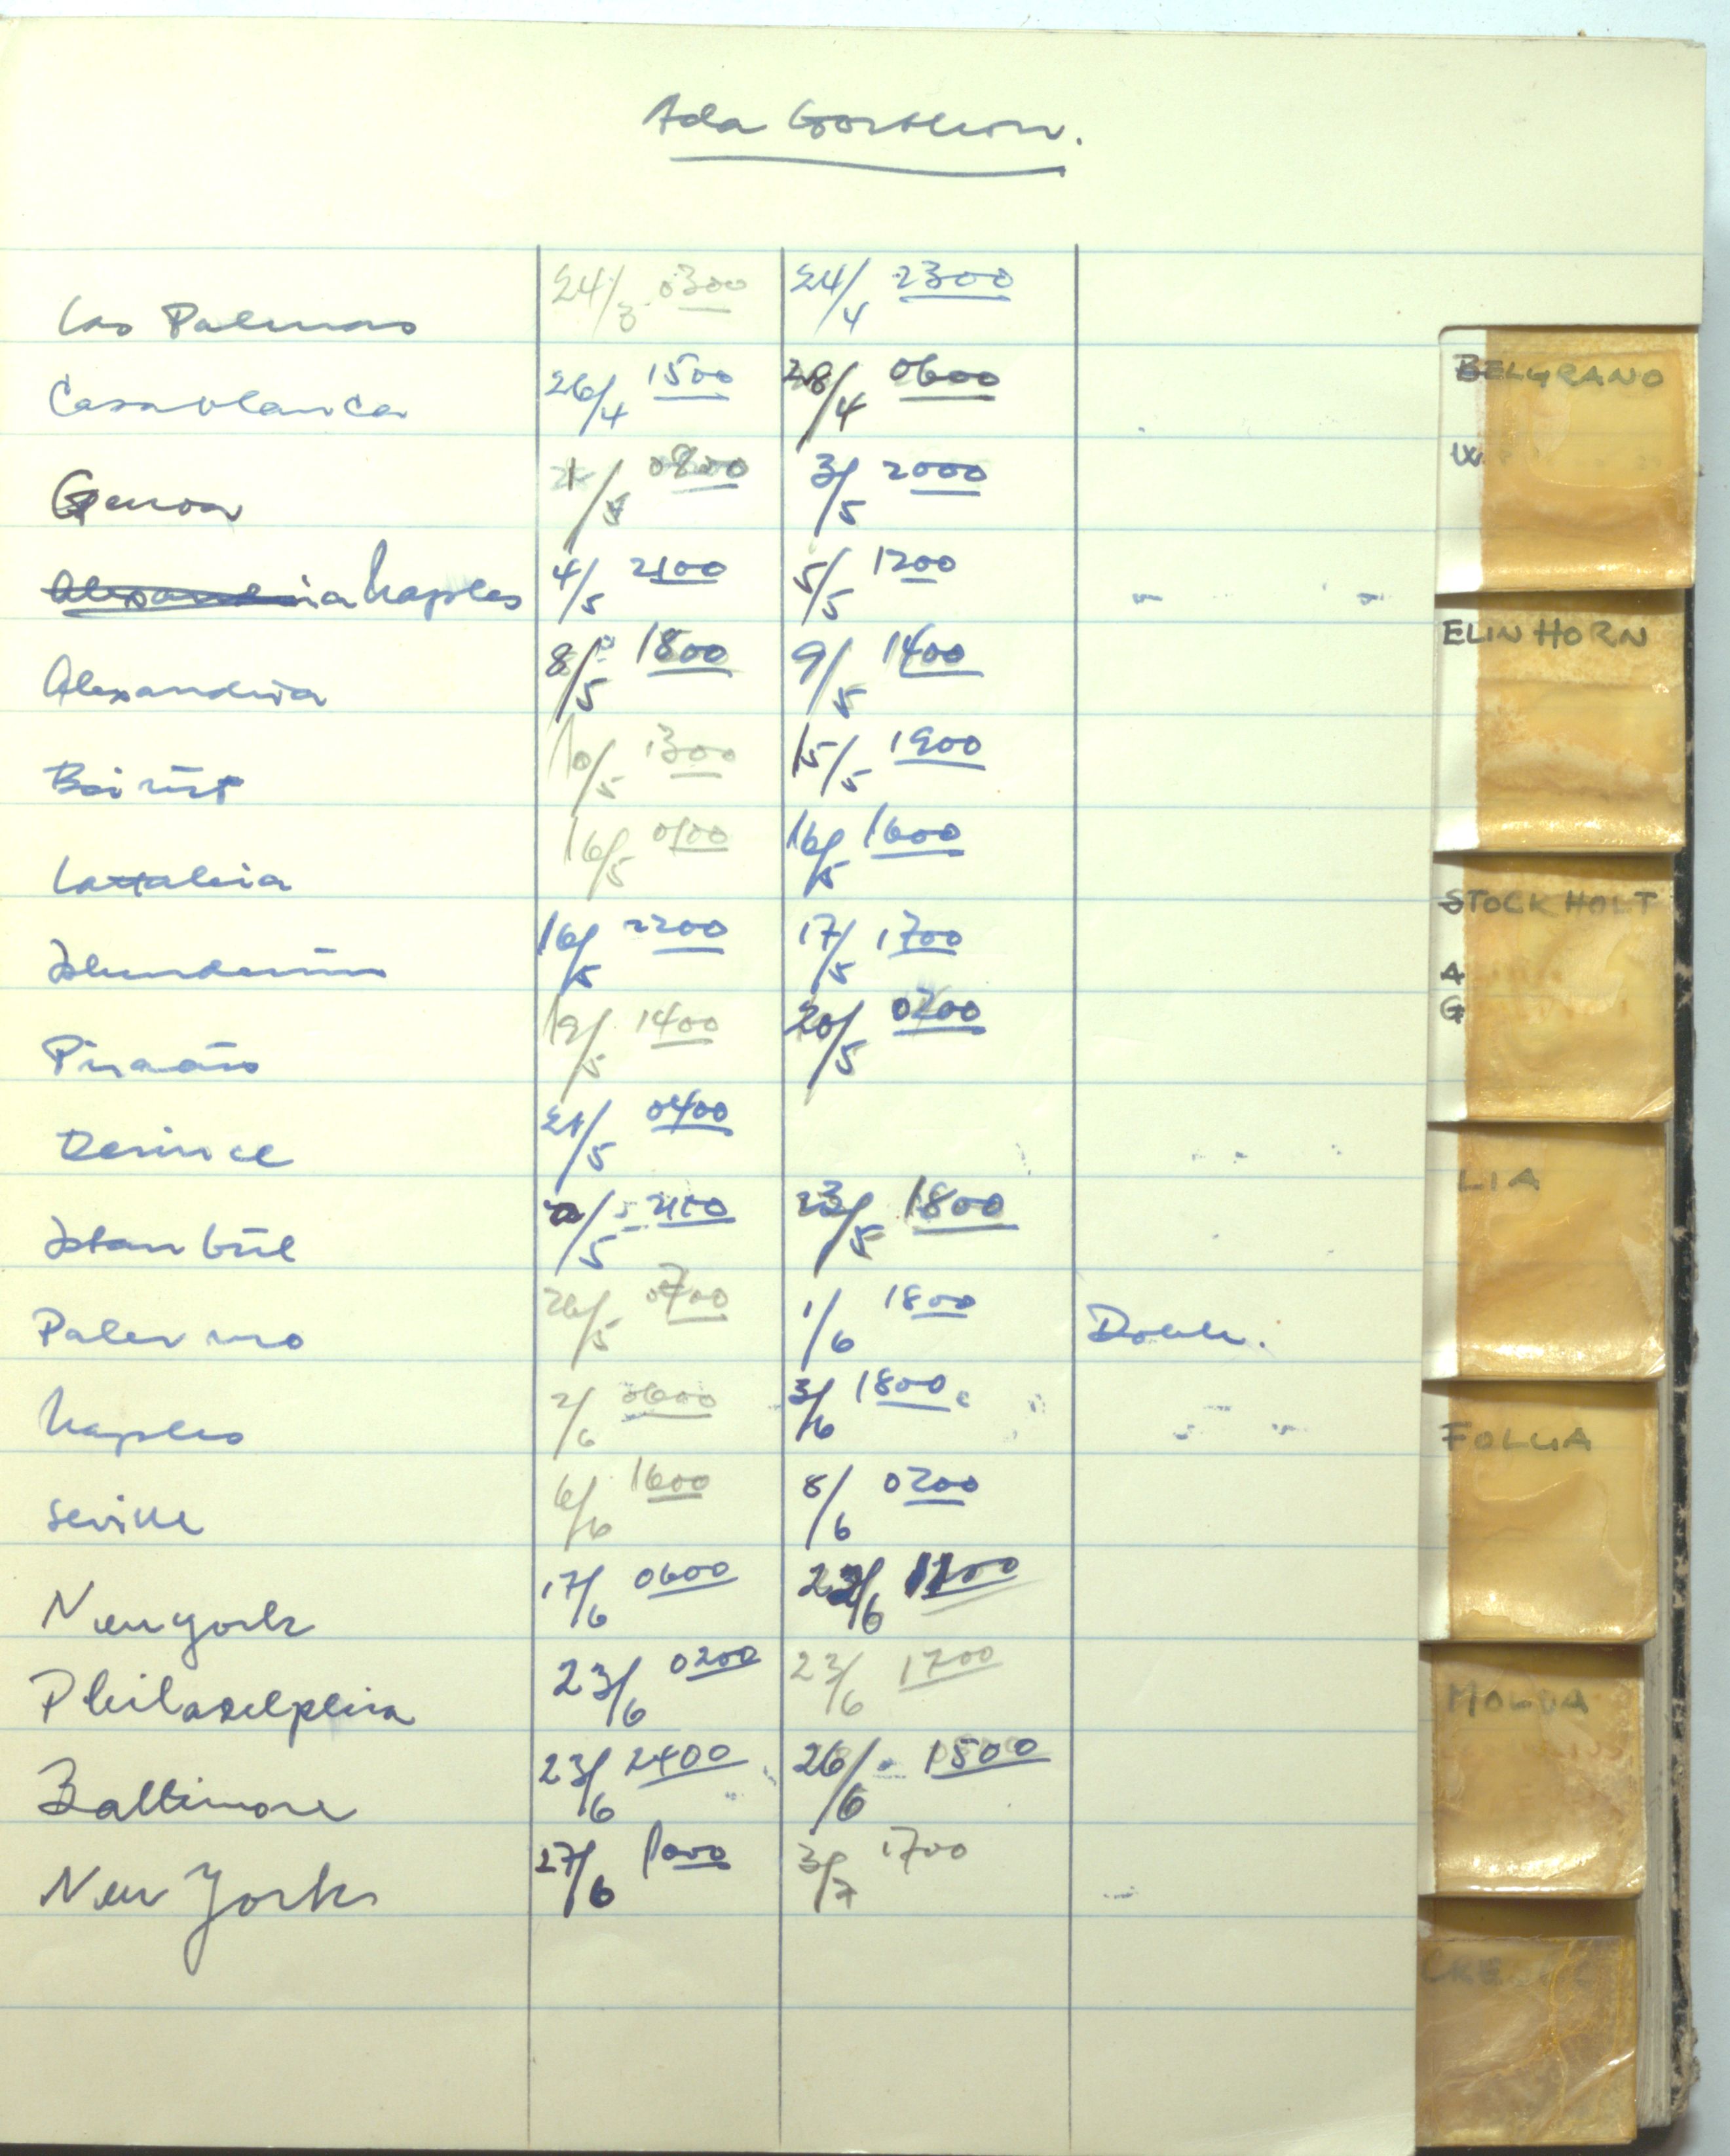 Ada Gorthon.
Las Palmas 24/3 0300 24/4 2300
Casablanca 26/4 1500 28/4 0600
Genoa 1/5 0800 3/5 2000
Alexandria Naples 4/5 2100 5/5 1200
Alexandria 8/5 1800 9/5 1400
Beirut 10/5 1300 15/5 1900
Lattakia 16/5 16/5 1600
Iskenderun 16/5 2200 17/5 1700
Piraäus 19/5 1400 20/5 0200
Derince 21/5 0400
Istanbul 5 2100 23/5 1800
Palermo 26/5 0700 1/6 1800
Naples 2/6 0600 3/6 1800
Seville 6/6 1600 8/6 0200
New york 17/6 0600 22/6 1200
Philadelphia 23/6 0200 23/6 1700
Baltimore 23/6 2400 26/6 1500
New York 27/6 1000 3/7 1700
BELGRANO
W
ELIN HORN
STOCKHOLT
A
G
LIA
FOLGA
MOLDA